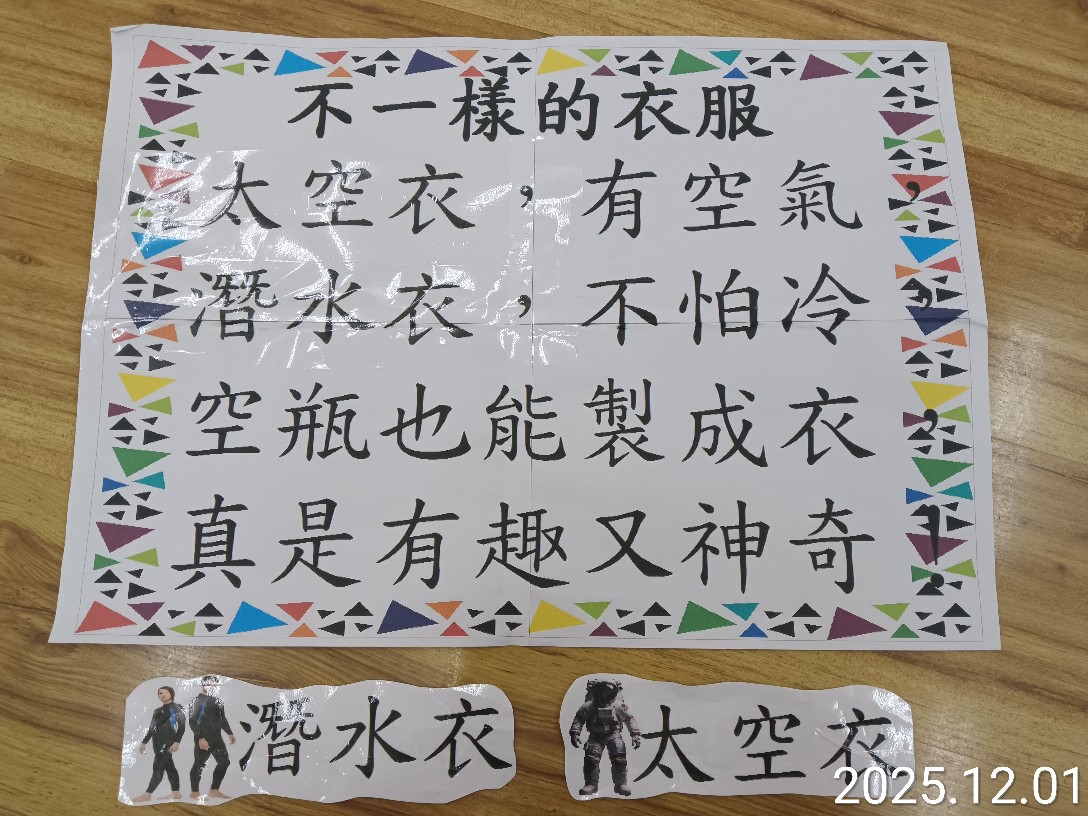 不一樣的衣服
太空衣，有空氣，
潛水衣，不怕冷，
空瓶也能製成衣，
真是有趣又神奇！
潛水衣
太空衣
2025.12.01